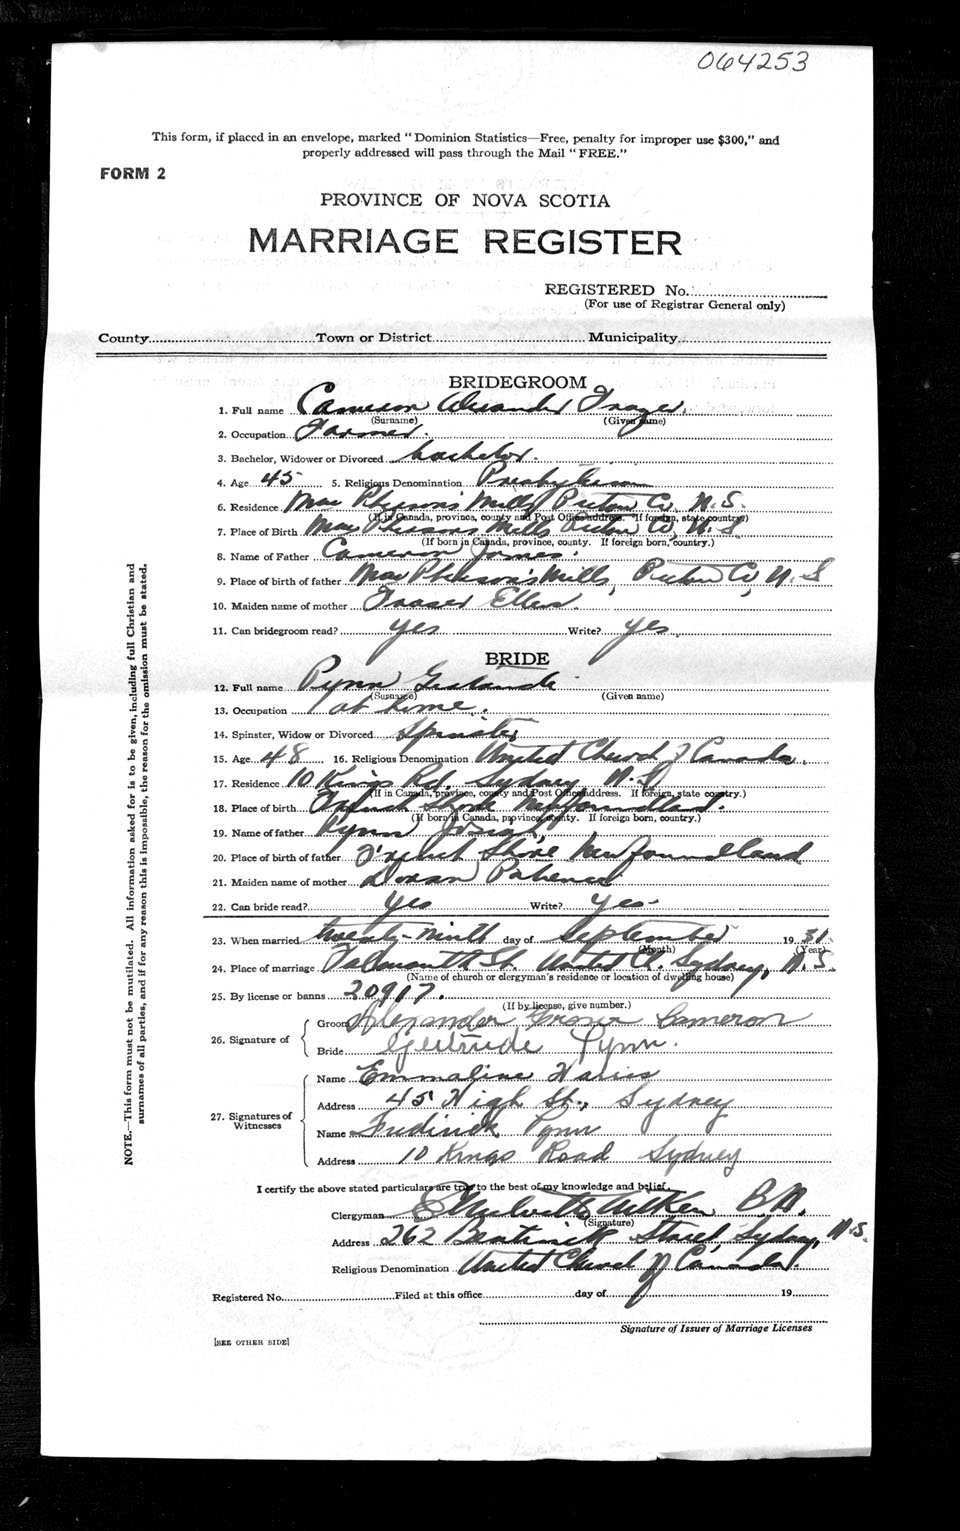 064253
This form, if placed in an envelope, marked "Dominion Statistics—Free, penalty for improper use $300," and
properly addressed will pass through the Mail "FREE."
FORM 2
PROVINCE OF NOVA SCOTIA
MARRIAGE REGISTER
REGISTERED No.
(For use of Registrar General only)
County Town or District Municipality
BRIDEGROOM
1. Full name Cameron Alexander Frazer
(Surname) (Given name)
2. Occupation Farmer.
3. Bachelor, Widower or Divorced bachelor.
4. Age 45 5. Religious Denomination Presbyterian
6. Residence Mac Pherson's Mills Pictou Co, N.S.
(If in Canada, province, county and Post Office address. If foreign, state country)
7. Place of Birth Mac Phersons Mills Pictou Co, N.S
(If born in Canada, province, county. If foreign born, country.)
8. Name of Father Cameron James.
9. Place of birth of father Mac Pherson's Mills, Pictou Co, N.S
10. Maiden name of mother Fraser Ellen.
11. Can bridegroom read? yes Write? yes
BRIDE
12. Full name Pynn Gertrude
(Surname) (Given name)
13. Occupation at home.
14. Spinster, Widow or Divorced Spinster
15. Age 48 16. Religious Denomination United Church of Canada.
17. Residence 10 Kings Rd. Sydney N.S
(If in Canada, province, county and Post Office address. If foreign, state country.)
18. Place of birth French Shore Newfoundland.
(If born in Canada, province, county. If foreign born, country.)
19. Name of father Pynn Josiah
20. Place of birth of father French Shore Newfoundland
21. Maiden name of mother Patience
22. Can bride read? Yes Write? Yes-
23. When married twenty-ninth day of September 1931
(Month) (Year)
24. Place of marriage Falmouth St. United C. Sydney, N.S.
(Name of church or clergyman's residence or location of dwelling house)
25. By license or banns 20917.
(If by license, give number.)
26. Signature of
Groom Alexander Fraser Cameron
Bride Gertrude Pynn.
27. Signatures of Witnesses
Name Emmaline Harris
Address 45 High St., Sydney
Name Frederick Pynn
Address 10 Kings Road Sydney
I certify the above stated particulars are true to the best of my knowledge and belief.
Clergyman Aitken B.A.
(Signature)
Address 262 Street, Sydney, N.S.
Religious Denomination United Church of Canada.
Registered No. Filed at this office day of 19
Signature of Issuer of Marriage Licenses
[SEE OTHER SIDE]
NOTE.—This form must not be mutilated. All information asked for is to be given, including full Christian and
surnames of all parties, and if for any reason this is impossible, the reason for the omission must be stated.